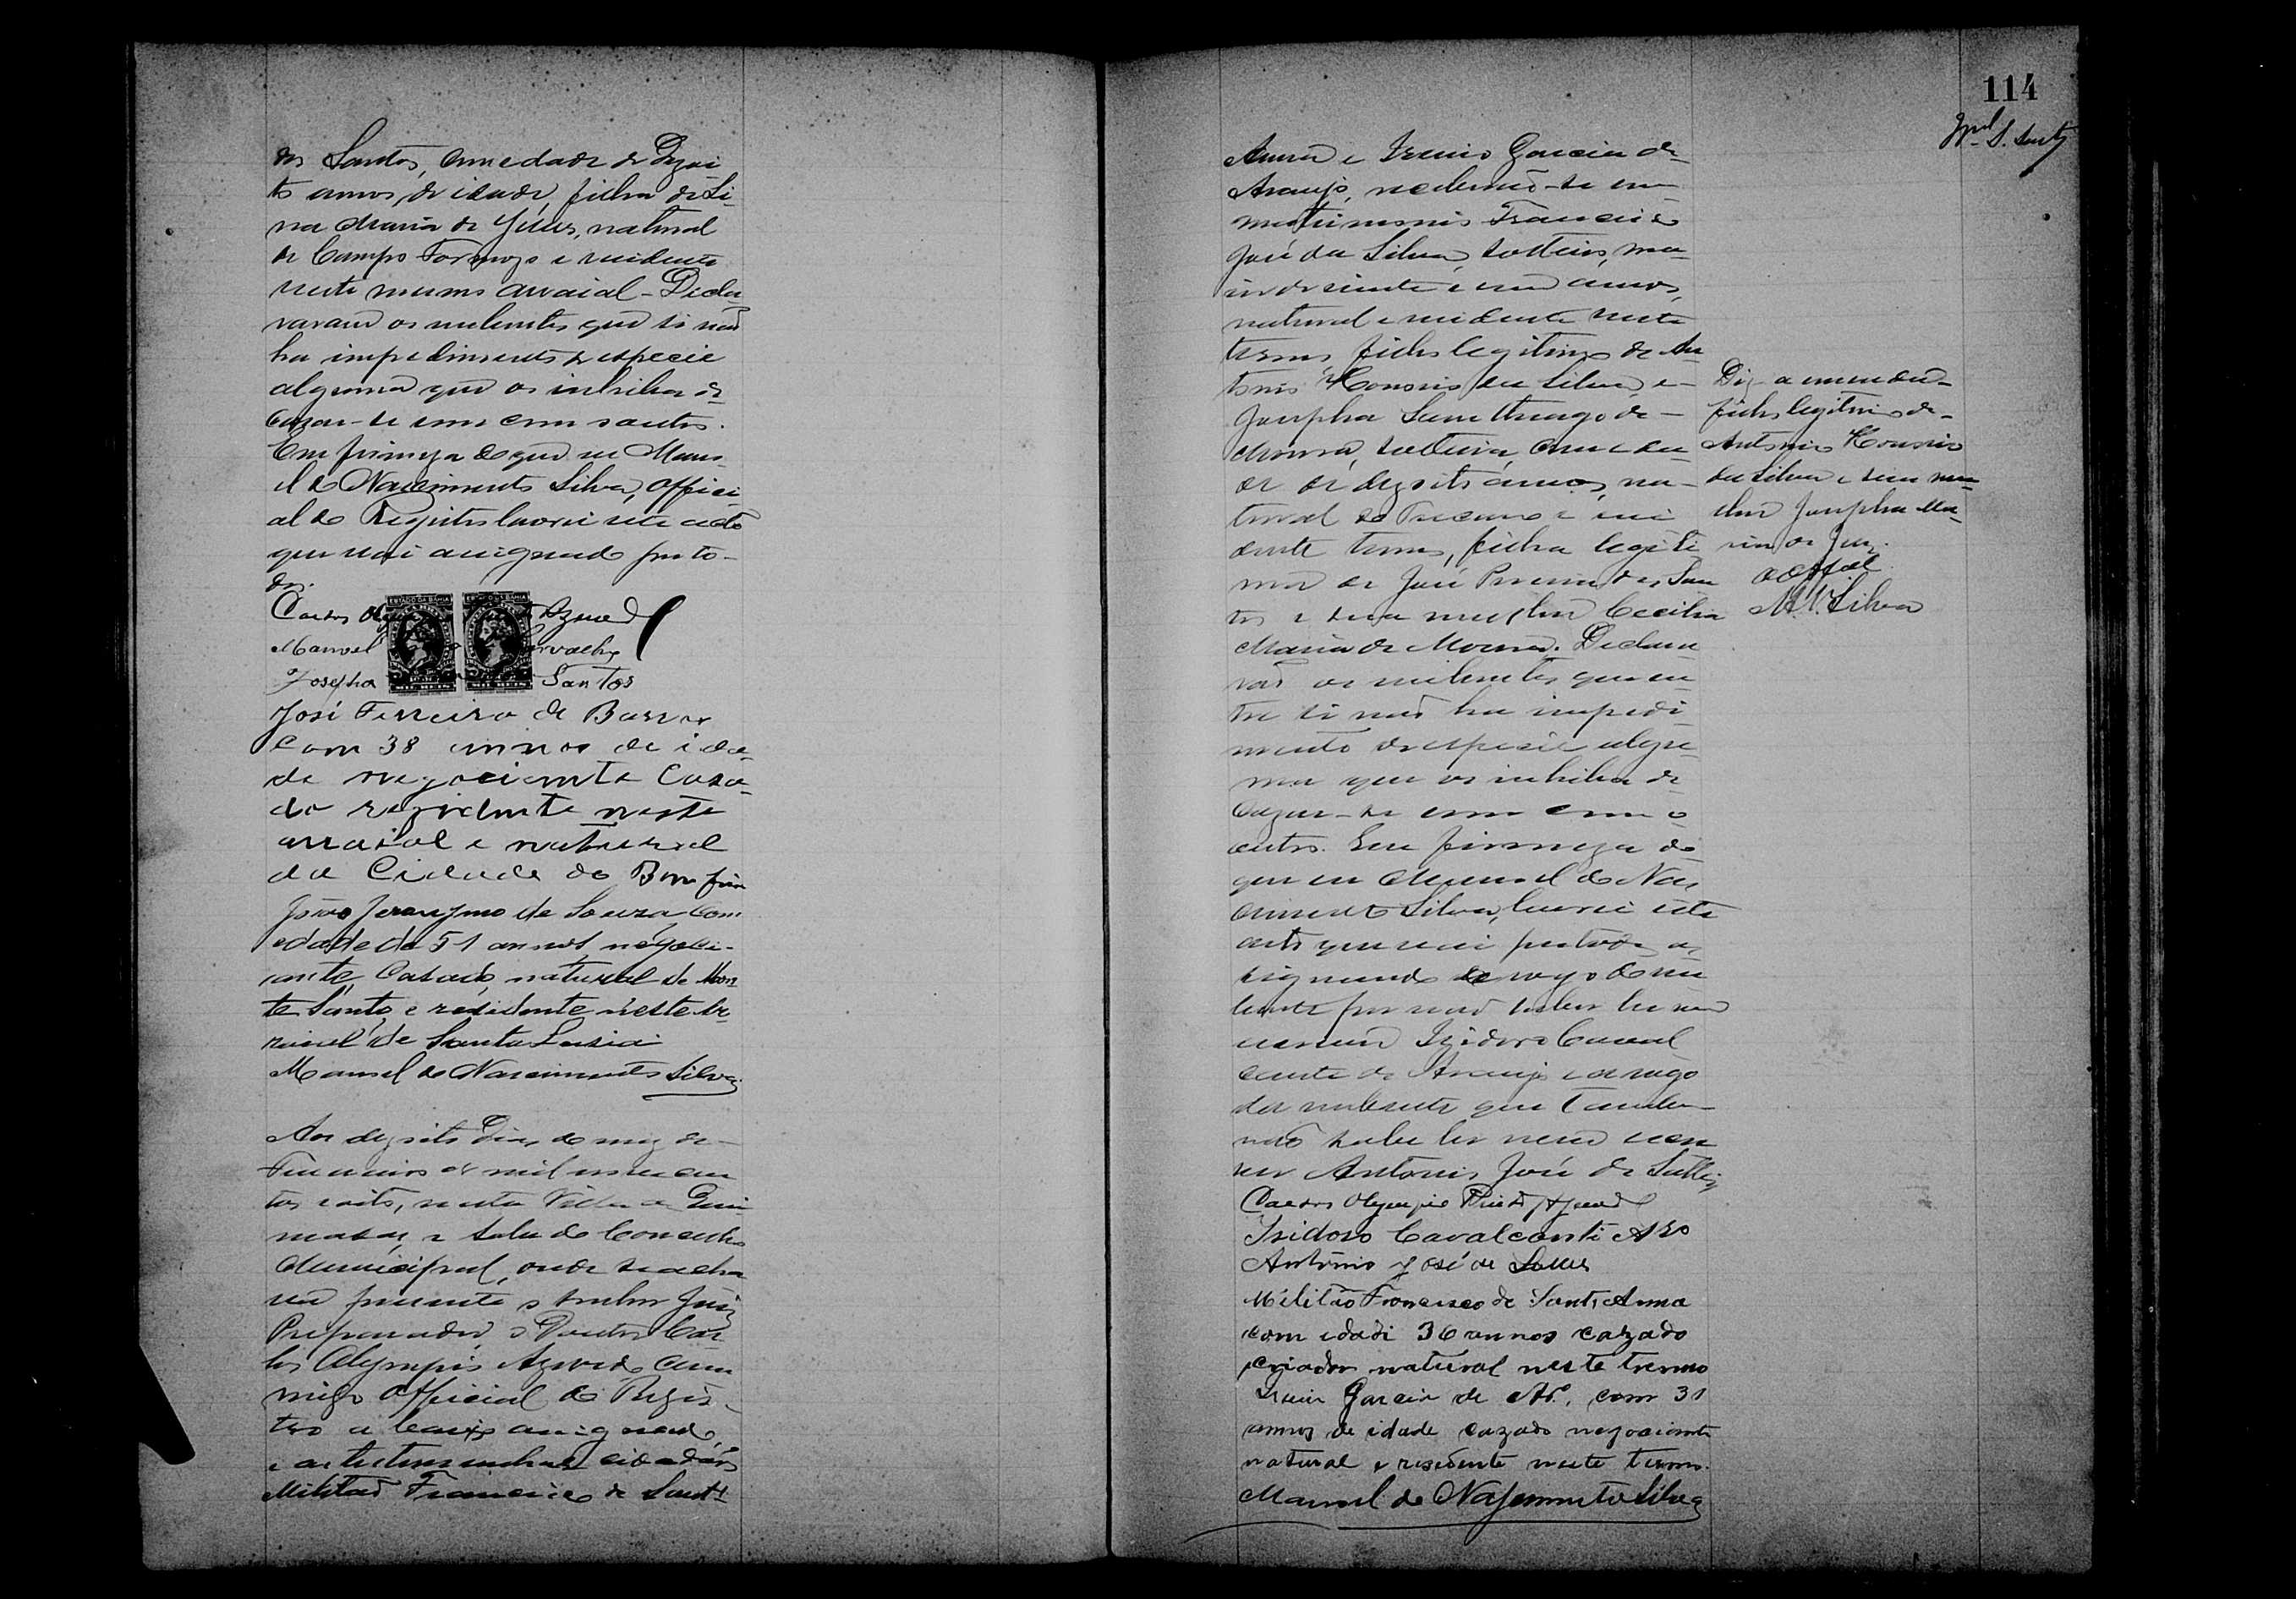 dos Santos, com edade de dezoi
to annos de idade, filha de Li
na Maria de Jesus, natural
de Campo Formozo e residente
neste mesmo arraial - Decla
raram os nubentes que si não
ha impedimento de especie
alguma que os inhiba de
cazar-se um com o outro.
Em firmeza do que eu Mano
el do Nascimento Silva, offici
al do Registro lavrei este acto
que vai assignado por to-
dos.
Carlos Azevedo
Manoel Carvalho
Josepha Santos
José Ferreira de Barros
com 38 annos de ida-
de negociante Casa-
do rezidente neste
arraial e natural
da Cidade do Bomfim
João Jeronymo de Souza com
edade de 51 annos, negoci-
ante, Casado, natural de Mon
te Santo, e residente n'este Ar
raial de Santa Luzia
Manoel do Nascimento Silva
Aos dezoito dias do mez de
Fevereiro de mil novecen
tos e oito, nesta Villa de Quei
madas, e sala do Conselho
Municipal, onde se acha
va presente o senhor Juiz
Preparador, o Doutor Car
los Olympio Azevedo com
migo Official do Regis-
tro a baixo assignado,
e as testemunhas cidadãos
Militão Francisco de Sant'
114
Anna e Irenio Garcia de
Araujo, receberão-se em
matrimonio Francisco
José da Silva, solteiro, ma
ior de vinte e um annos,
natural e residente neste
termo filho legitimo de An
tonio Honorio da Silva e
Josepha Santhiago de
Moura, solteira, com eda
de de dezoito annos, na-
tural do Tucano e resi
dente termo, filha legiti
ma de José Pereira dos San
tos e sua mulher Cecilia
Maria de Moura. Declara
rão os nubentes que en
tre si não ha impedi
mento de especie algu
ma que os inhiba de
cazar-se um com o
outro. Em firmeza do
que eu Manoel do Nas
cimento Silva, lavrei este
acto que vai por todos as
signado a rogo do nu
bente por não saber ler nem
escrever Izidoro Caval
cante de Araujo e a rogo
da nubente que tambem
não sabe ler nem escre
ver Antonio José de Salles
Carlos Olympio Azevedo
Isidoro Cavalcanti Aro
Antônio José de Salles
Militão Francisco de Sant'Anna
com idadi 36 annos cazado
criador natural neste termo
Irenio Garcia de Arº. com 31
annos de idade cazado negociante
natural e residente neste termo.
Manoel do Nascimento Silva
Diz a emenda
filho legitimo de
Antonio Honorio
da Silva e sua mu
lher Josepha Ma
ria de Jesus.
M. N. Silva